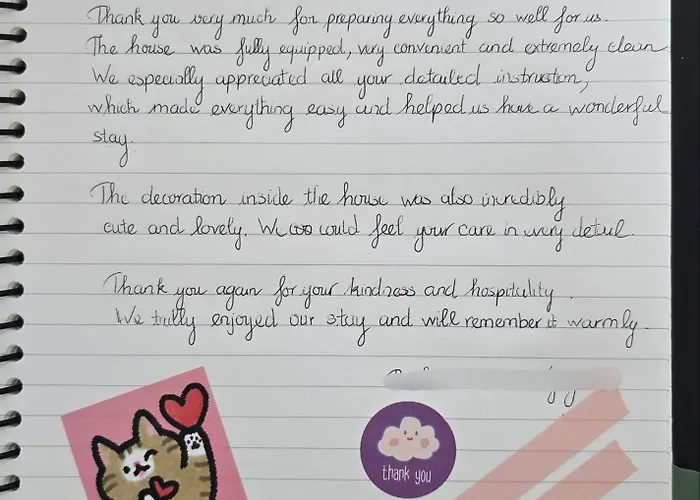 Thank you very much for preparing everything so well for us.
The house was fully equipped, very convenient and extremely clean
We especially appreciated all your detailed instruction,
which made everything easy and helped us have a wonderful
stay.
The decoration inside the house was also incredibly
cute and lovely. We could feel your care in every detail.
Thank you again for your kindness and hospitality.
We trully enjoyed our stay and will remember it warmly.
thank you